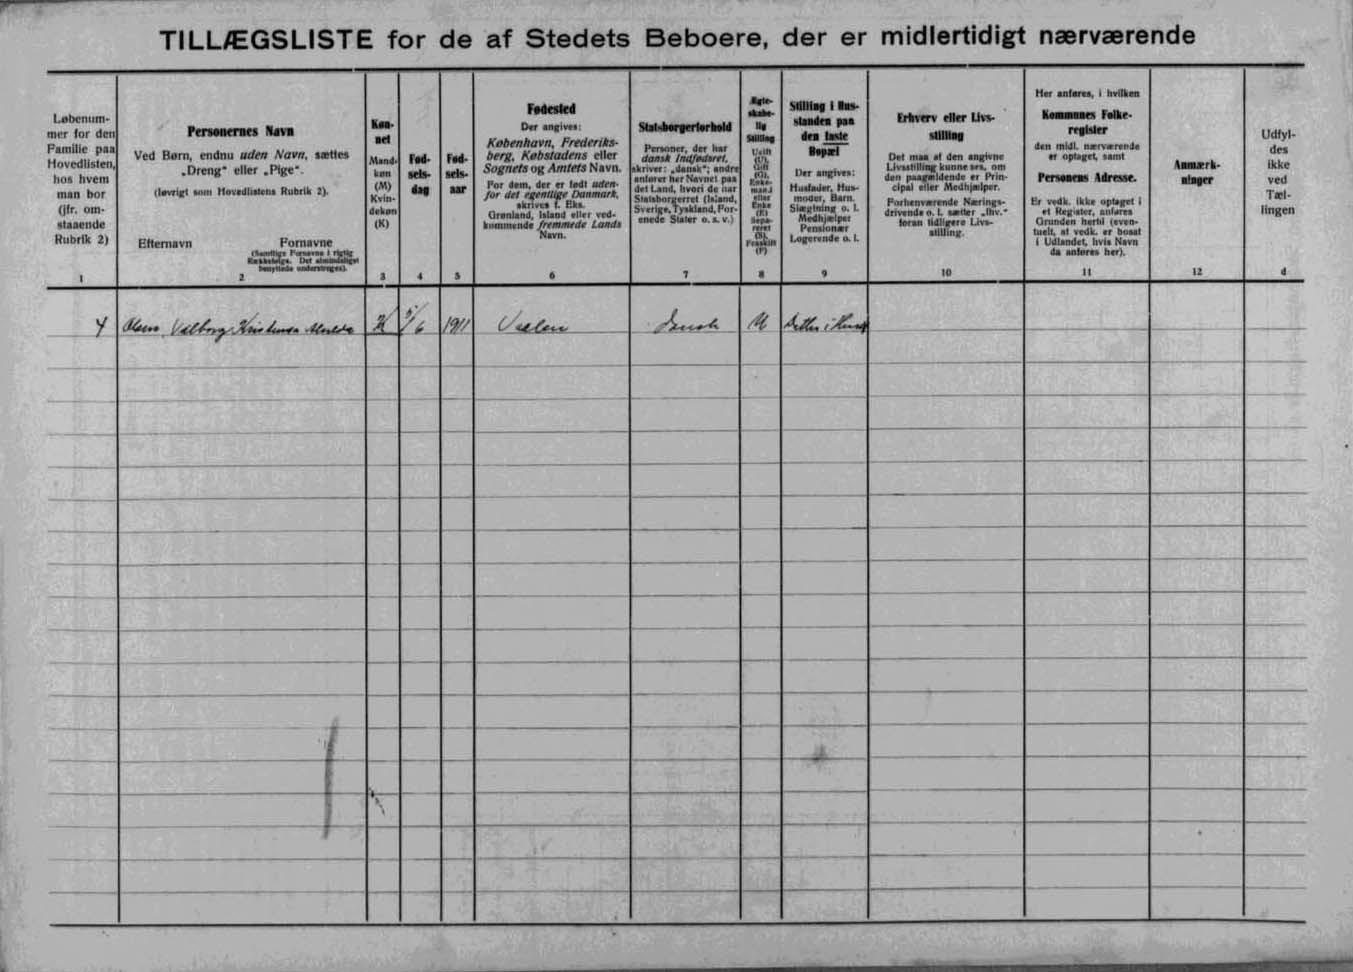 TILLÆGSLISTE for de af Stedets Beboere, der er midlertidigt nærværende
Løbenum-
mer for den
Familie paa
Hovedlisten,
hos hvem
man bor
(jfr. om-
staaende
Rubrik 2)
1
Personernes Navn
Ved Børn, endnu uden Navn, sættes
„Dreng“ eller „Pige“.
(Iøvrigt som Hovedlistens Rubrik 2).
Efternavn Fornavne
(Samtlige Fornavne i rigtig
Rækkefølge. Det almindeligst
benyttede understreges).
2
Køn-
net
Mand-
køn
(M)
Kvin-
dekøn
(K)
3
Fød-
sels-
dag
4
Fød-
sels-
aar
5
Fødested
Der angives:
København, Frederiks-
berg, Købstadens eller
Sognets og Amtets Navn.
For dem, der er født uden-
for det egentlige Danmark,
skrives f. Eks.
Grønland, Island eller ved-
kommende fremmede Lands
Navn.
6
Statsborgerforhold
Personer, der har
dansk Indfødsret,
skriver: „dansk“; andre
anfører her Navnet paa
det Land, hvori de har
Statsborgerret (Island,
Sverige, Tyskland, For-
enede Stater o. s. v.)
7
Ægte-
skabe-
lig
Stilling
Ugift
(U),
Gift
(G),
Enke-
mand
eller
Enke
(E)
Sepa-
reret
(S),
Fraskilt
(F)
8
Stilling i Hus-
standen paa
den faste
Bopæl
Der angives:
Husfader, Hus-
moder, Barn,
Slægtning o. l.
Medhjælper
Pensionær
Logerende o. l.
9
Erhverv eller Livs-
stilling
Det maa af den angivne
Livsstilling kunne ses, om
den paagældende er Prin-
cipal eller Medhjælper.
Forhenværende Nærings-
drivende o. l. sætter „fhv.“
foran tidligere Livs-
stilling.
10
Her anføres, i hvilken
Kommunes Folke-
register
den midl. nærværende
er optaget, samt
Personens Adresse.
Er vedk. ikke optaget i
et Register, anføres
Grunden hertil (even-
tuelt, at vedk. er bosat
i Udlandet, hvis Navn
da anføres her).
11
Anmærk-
ninger
12
Udfyl-
des
ikke
ved
Tæl-
lingen
d
4 Olsen Valborg Kristensa K 5/6 1911 dansk U Datter i Huset